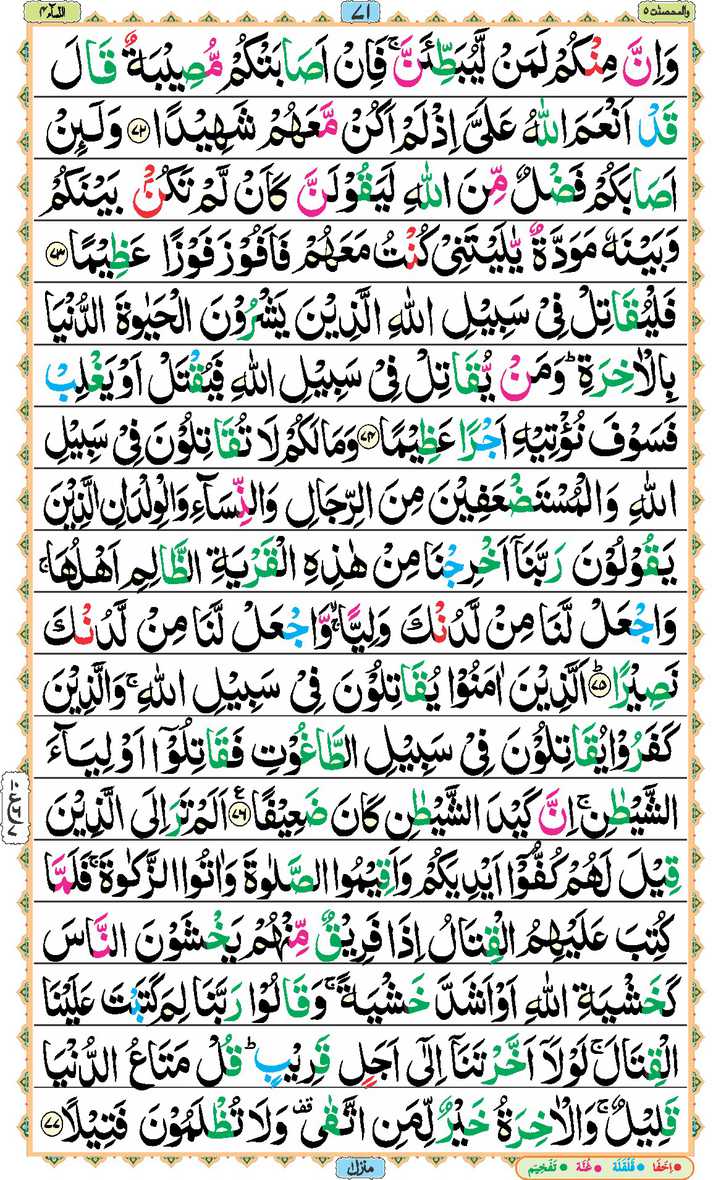 والمحصنت ۵
۷۱
النسآء ۴
وَاِنَّ مِنْكُمْ لَمَنْ لَّيُبَطِّئَنَّ ۚ فَاِنْ اَصَابَتْكُمْ مُّصِيْبَةٌ قَالَ
قَدْ اَنْعَمَ اللّٰهُ عَلَيَّ اِذْ لَمْ اَكُنْ مَّعَهُمْ شَهِيْدًا ﴿۷۲﴾ وَلَئِنْ
اَصَابَكُمْ فَضْلٌ مِّنَ اللّٰهِ لَيَقُوْلَنَّ كَاَنْ لَّمْ تَكُنْۢ بَيْنَكُمْ
وَبَيْنَهٗ مَوَدَّةٌ يّٰلَيْتَنِيْ كُنْتُ مَعَهُمْ فَاَفُوْزَ فَوْزًا عَظِيْمًا ﴿۷۳﴾
فَلْيُقَاتِلْ فِيْ سَبِيْلِ اللّٰهِ الَّذِيْنَ يَشْرُوْنَ الْحَيٰوةَ الدُّنْيَا
بِالْاٰخِرَةِ ؕ وَمَنْ يُّقَاتِلْ فِيْ سَبِيْلِ اللّٰهِ فَيُقْتَلْ اَوْ يَغْلِبْ
فَسَوْفَ نُؤْتِيْهِ اَجْرًا عَظِيْمًا ﴿۷۴﴾ وَمَا لَكُمْ لَا تُقَاتِلُوْنَ فِيْ سَبِيْلِ
اللّٰهِ وَالْمُسْتَضْعَفِيْنَ مِنَ الرِّجَالِ وَالنِّسَآءِ وَالْوِلْدَانِ الَّذِيْنَ
يَقُوْلُوْنَ رَبَّنَاۤ اَخْرِجْنَا مِنْ هٰذِهِ الْقَرْيَةِ الظَّالِمِ اَهْلُهَا ۚ
وَاجْعَلْ لَّنَا مِنْ لَّدُنْكَ وَلِيًّا ۙۚ وَّاجْعَلْ لَّنَا مِنْ لَّدُنْكَ
نَصِيْرًا ﴿ؕ۷۵﴾ اَلَّذِيْنَ اٰمَنُوْا يُقَاتِلُوْنَ فِيْ سَبِيْلِ اللّٰهِ ۚ وَالَّذِيْنَ
كَفَرُوْا يُقَاتِلُوْنَ فِيْ سَبِيْلِ الطَّاغُوْتِ فَقَاتِلُوْۤا اَوْلِيَآءَ
الشَّيْطٰنِ ۚ اِنَّ كَيْدَ الشَّيْطٰنِ كَانَ ضَعِيْفًا ﴿۷۶﴾ ع اَلَمْ تَرَ اِلَى الَّذِيْنَ
قِيْلَ لَهُمْ كُفُّوْۤا اَيْدِيَكُمْ وَاَقِيْمُوا الصَّلٰوةَ وَاٰتُوا الزَّكٰوةَ ۚ فَلَمَّا
كُتِبَ عَلَيْهِمُ الْقِتَالُ اِذَا فَرِيْقٌ مِّنْهُمْ يَخْشَوْنَ النَّاسَ
كَخَشْيَةِ اللّٰهِ اَوْ اَشَدَّ خَشْيَةً ۚ وَقَالُوْا رَبَّنَا لِمَ كَتَبْتَ عَلَيْنَا
الْقِتَالَ ۚ لَوْلَاۤ اَخَّرْتَنَاۤ اِلٰٓى اَجَلٍ قَرِيْبٍ ؕ قُلْ مَتَاعُ الدُّنْيَا
قَلِيْلٌ ۚ وَالْاٰخِرَةُ خَيْرٌ لِّمَنِ اتَّقٰى قف وَلَا تُظْلَمُوْنَ فَتِيْلًا ﴿۷۷﴾
منزل
• اِخْفَا • قَلْقَلَة • غُنَّة • تَفْخِيْم